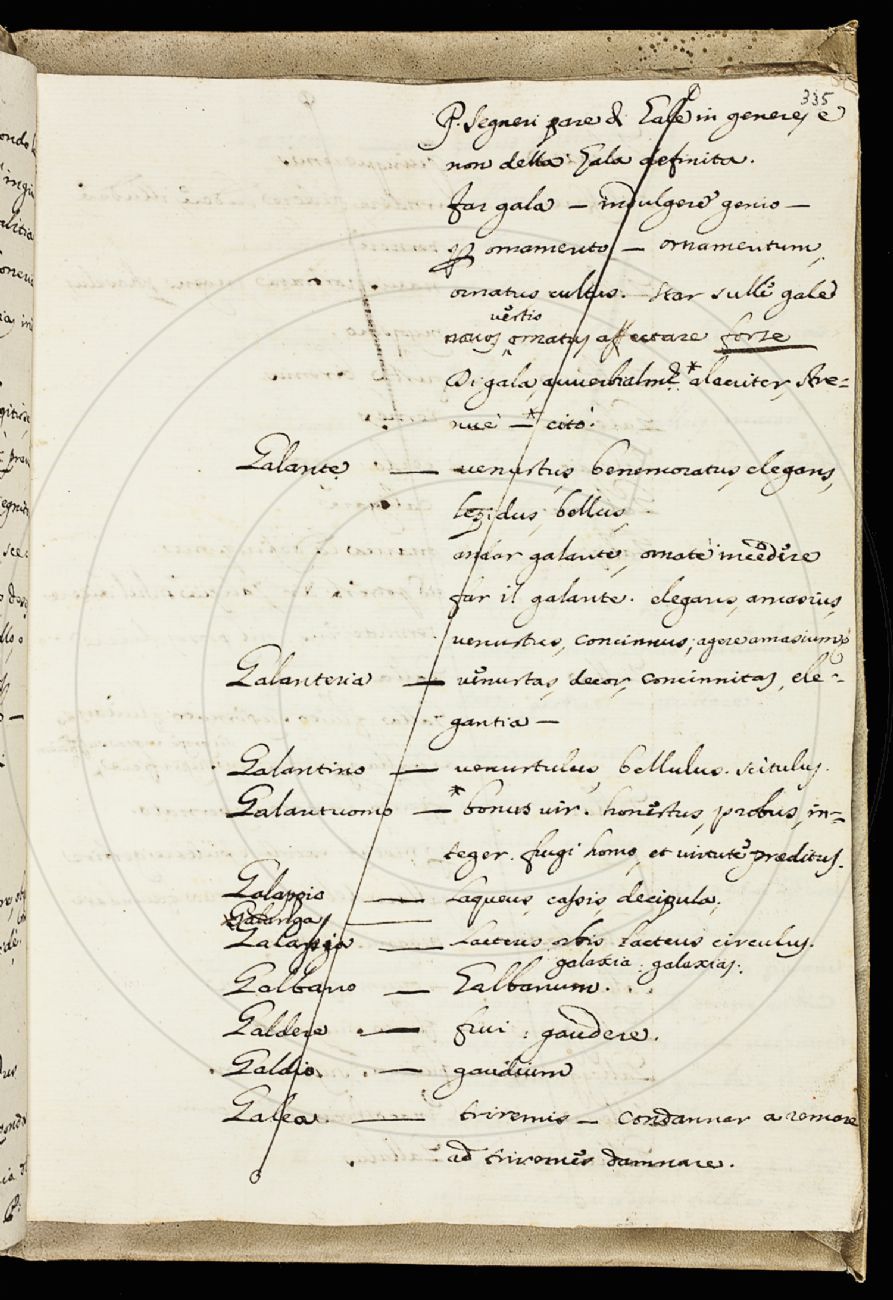 335
P. Segneri pare di Gale in genere, e
non della Gala definita.
far gala — indulgere genio —
p ornamento — ornamentum,
ornatus cultus. Star sulle gale
vestio
novos ornatus affectare forse
Di gala, avverbialmte *alacriter, stre=
nuè — *citò.
Galante — venustus, benemoratus, elegans,
lepidus, bellus,
andar galante, ornatè incedere
far il galante. elegans, amasius,
venustus, concinnus, agere amasium
Galanteria — venustas, decor, concinnitas, ele=
gantia —
Galantino — venustulus, bellulus. scitulus.
Galantuomo — *bonus vir. honestus, probus, in=
teger. frugi homo, et virtute præditus.
Galappio — Laqueus, cassis, decipula,
Galanga
Galassia — Lacteus orbis lacteus circulus.
galaxia : galaxias.
Galbano — Galbanum.
Galdere — frui : gaudere.
Galdio — gaudium
Galea — triremis — condannar a remare
ad triremes damnare.